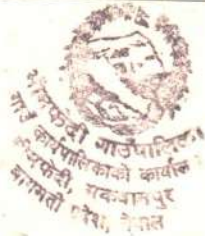 भीमफेदी गाउँपालिका
गाउँ कार्यपालिकाको कार्यालय
भीमफेदी, मकवानपुर
बागमती प्रदेश, नेपाल